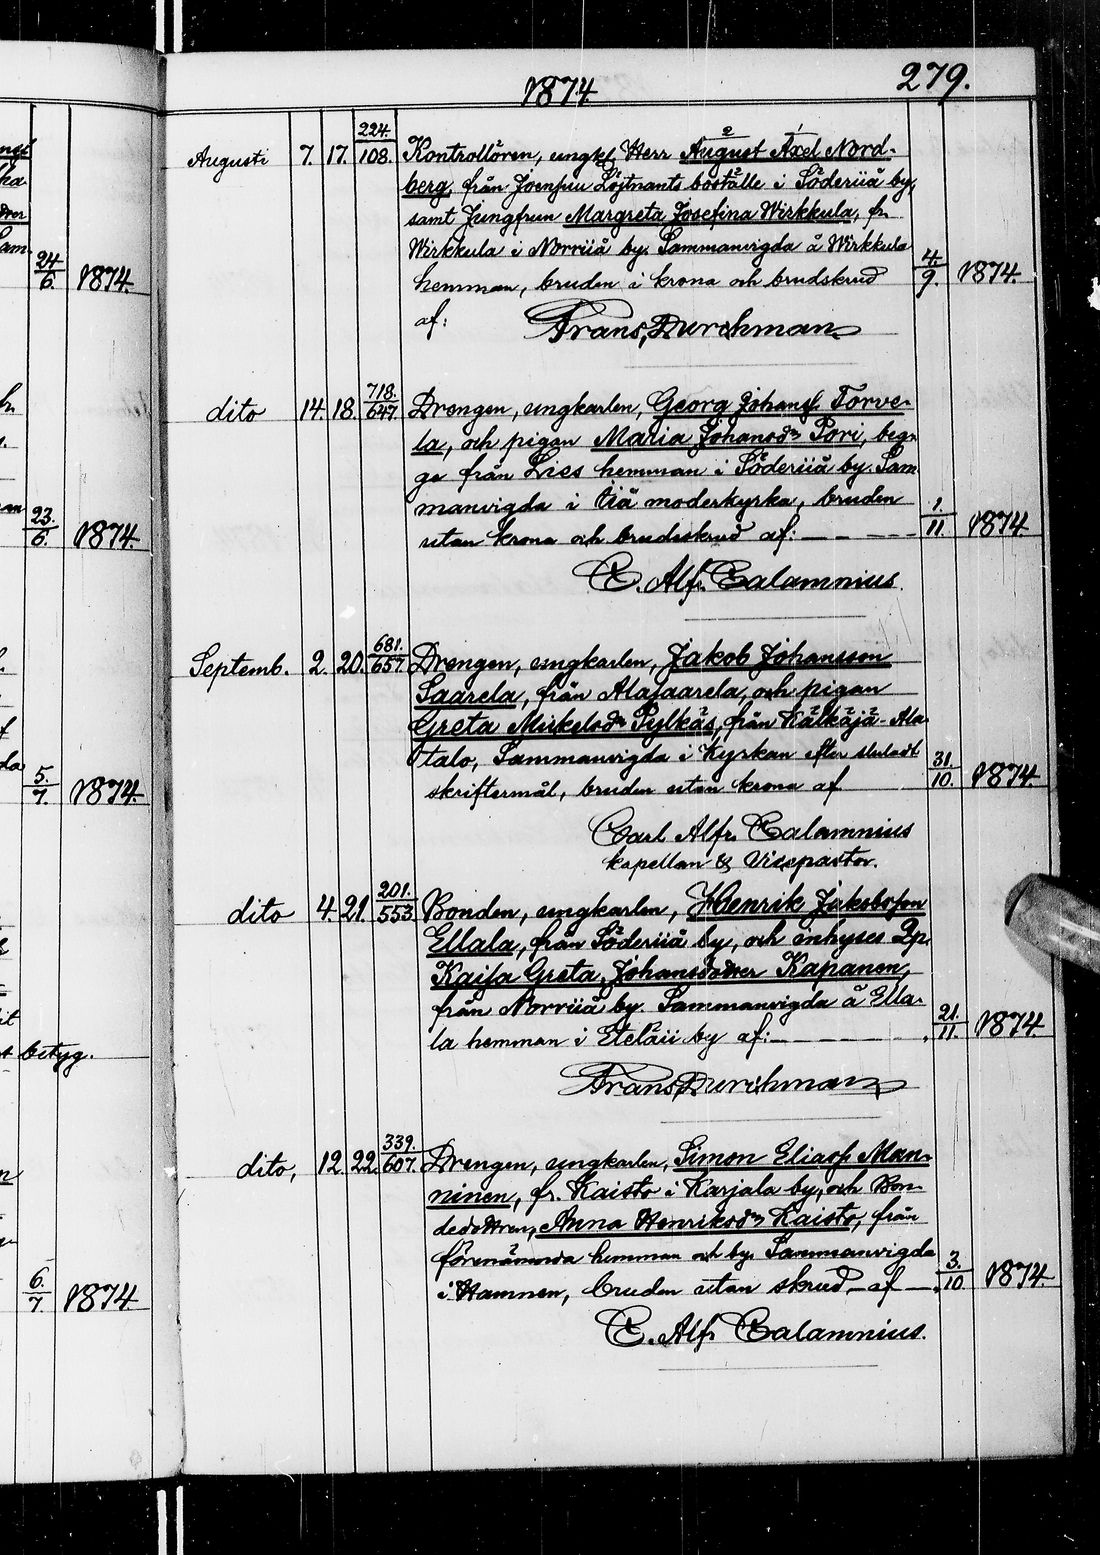 1874
279.
224.
Augusti 7. 17. 108. Kontrollören, ungk. Herr August Axel Nord-
2 1
berg, från Joensuu Löjtnants boställe i Söderiiå by,
samt Jungfrun Margreta Josefina Wirkkula, fr.
Wirkkula i Norriiå by. Sammanvigda å Wirkkula
hemman, bruden i krona och brudskrud 4./9. 1874.
af: Frans Durchman
718.
dito 14. 18. 647. Drengen, ungkarlen, Georg Johans. Torve-
la, och pigan Maria Johansdr Pori, beg-
ge från Liss hemman i Söderiiå by. Sam
manvigda i Iiå moderkyrka, bruden
utan krona och brudskrud af: 1./11. 1874.
C. Alfr. Calamnius.
681.
Septemb. 2. 20. 657. Drengen, ungkarlen, Jakob Johansson
Saarela, från Alasaarela, och pigan
Greta Mickelsdr Pylkäs, från Kälkäjä-Ala
talo, Sammanvigda i Kyrkan efter slutadt
skriftermål, bruden utan krona af 31./10. 1874.
Carl Alfr. Calamnius
kapellan & Vicepastor.
201.
dito 4. 21. 553. Bonden, ungkarlen, Henrik Jakobsson
Ellala, från Söderiiå by, och inhyses Dp.
Kaisa Greta Johansdotter Kapanen,
från Norriiå by. Sammanvigda å Ella-
la hemman i Eteläii by af: 21./11. 1874
Frans Durchman
339.
dito, 12 22. 607. Drengen, ungkarlen, Simon Eliass. Man-
ninen, fr. Kaisto i Karjala by, och Bon-
dedottren, Anna Henriksdr Kaisto, från
förenämnda hemman och by. Sammanvigda
i Hamnen, bruden utan skrud, af 3./10 1874.
C. Alfr Calamnius.
24/6. 1874.
23./6. 1874.
5./7. 1874.
betyg.
6./7. 1874